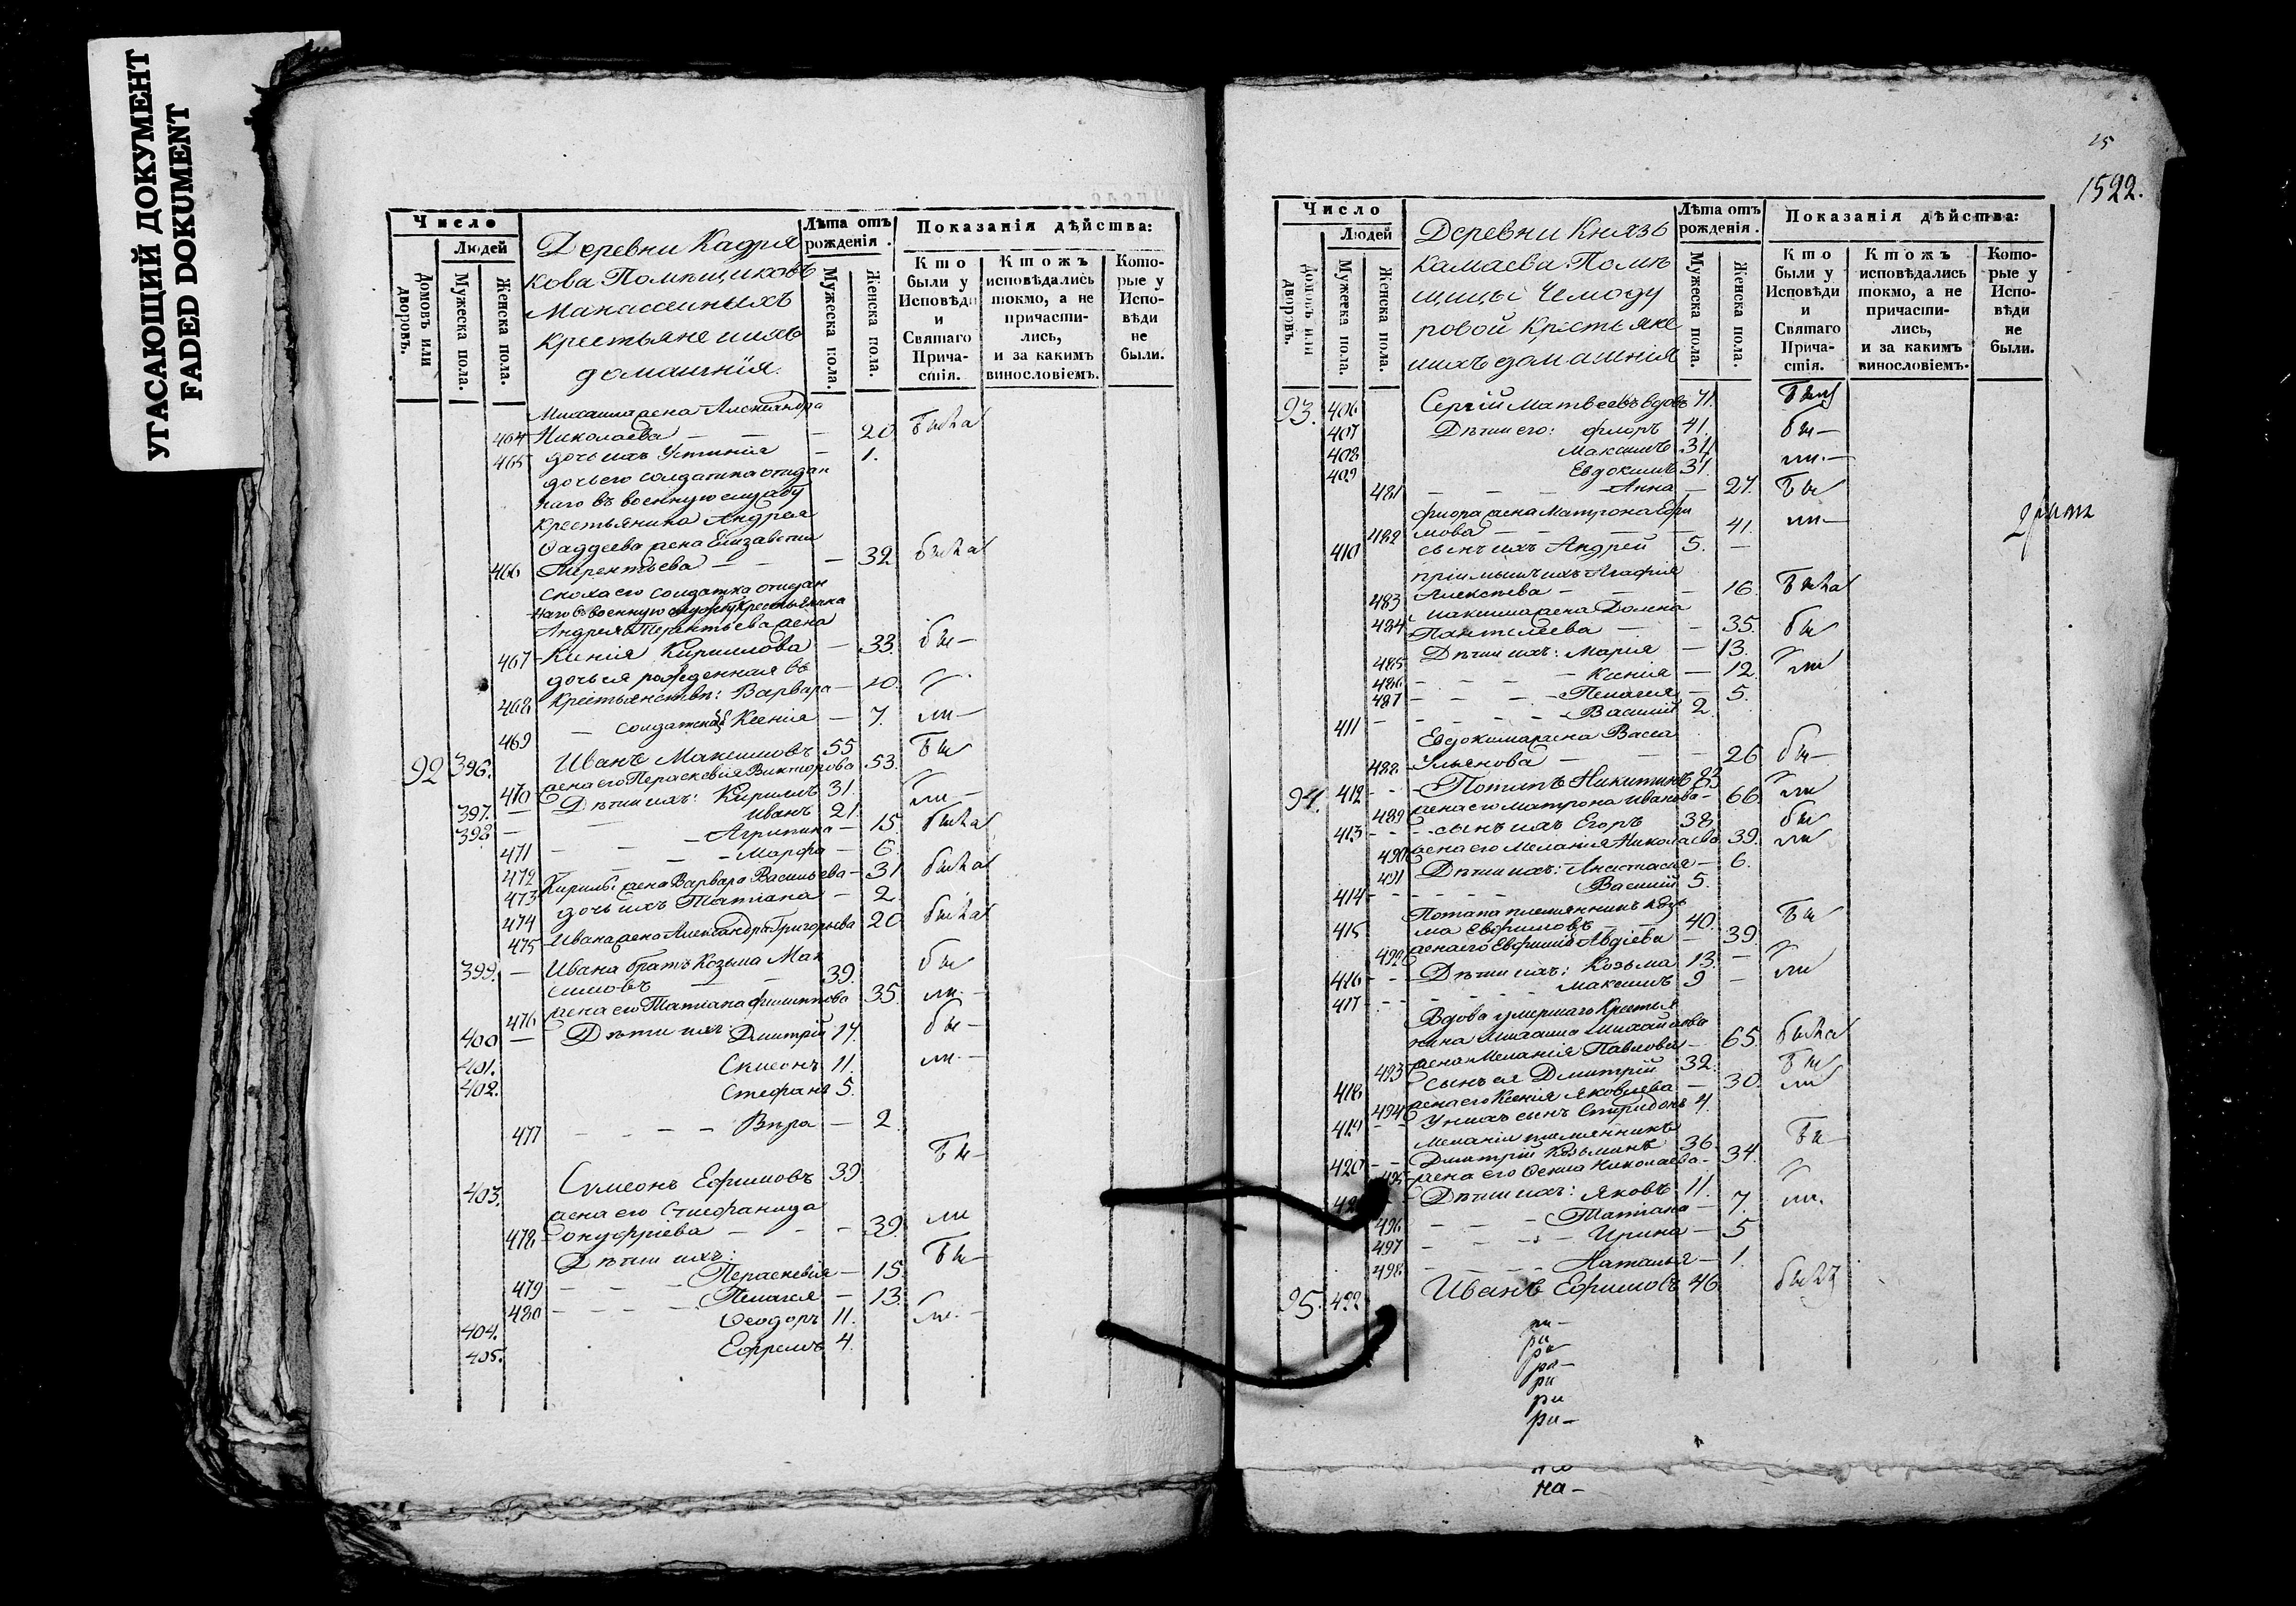 УГАСАЮЩИЙ ДОКУМЕНТ
FADED DOKUMENT
Число
Людей
Домовъ или дворовъ.
Мужеска пола.
Женска пола.
Деревни Кадря
кова Помѣщиковъ
Манассеиныхъ
крестьяне и ихъ
домашнія.
Лѣта отъ рожденія.
Мужеска пола.
Женска пола.
Показанія дѣйства:
Кто были у Исповѣди и Святаго Прича-стія.
Ктожъ исповѣдались токмо, а не причасти-лись, и за какимъ винословіемъ.
Кото-рые у Испо-вѣди не были.
Михаила жена Александра
464 Николаева — — — 20 была
465 дочь ихъ Устинія — 1.
дочь его солдатка отдан
наго въ военную службу
крестьянина Андрея
Фаддеева жена Елизавета
466 Терентьева — — — 32 была
сноха его солдатка отдан
наго въ военную службу крестьянина
Андрея Терентьева жена
467 Ксенія Кириллова — 33. бы—
дочь ея рожденная въ
468 крестьянствѣ: Варвара — 10.
469 — солдатская Ксенія — 7. ли—
92 396. Иванъ Максимовъ 55 бы
470 жена его Параскевія Викторова 53.
397. — Дѣти ихъ: Кириллъ 31. ли—
398 — Иванъ 21.
471 — — — Агрипина — 15. была
472 — — Марфа — 6.
473 Кирила жена Варвара Васильева — 31 была
474 дочь ихъ Татіана — 2.
475 Ивана жена Александра Григорьева 20 была
399. — Ивана братъ Козьма Мак
симовъ — 39. бы
476 жена его Татіана Филиппова 35. ли—
400 — Дѣти ихъ: Дмитрій 14. бы—
401. Симеонъ 11. ли—
402. Стефанъ 5.
477 — — — — Вѣра — 2.
403. Симеонъ Ефимовъ 39. бы—
жена его Стефанида
478 Онуфріева — — — 39. ли
Дѣти ихъ:
479 — — — Параскевія — 15. бы—
480 — — — — Пелагея — 13.
404. Ѳеодоръ 11. ли. —
405. Ефремъ 4.
25
1522.
Число
Людей
Домовъ или дворовъ.
Мужеска пола.
Женска пола.
Деревни Князь
Камаева Помѣ
щицы Чемоду
ровой Крестьяне
и ихъ домашнія
Лѣта отъ рожденія.
Мужеска пола.
Женска пола.
Показанія дѣйства:
Кто были у Исповѣди и Святаго Прича-стія.
Ктожъ исповѣдались токмо, а не причасти-лись, и за какимъ винословіемъ.
Кото-рые у Испо-вѣди не были.
93. 406 Сергій Матвеевъ вдовъ 71.
407 Дѣти его: Флоръ 41. бы—
408 Максимъ 31 ли.—
409 Евдокимъ 31.
481 — — — — Анна — 27. бы
Флора жена Матрона Ефи
482 мова — — — — 41. ли—
410 сынъ ихъ Андрей 5. —
пріимышъ ихъ Агафія
483 Алексѣева — — — 16. была
Максима жена Домна
484 Пантелеева — — 35. бы
485 Дѣти ихъ: Марія — 13.
486 — — — — Ксенія — 12. ли
487 — — — — Пелагея — 5.
411 — — — — — Василій 2.
Евдокима жена Васса
488 Ульянова — — — 26 бы—
94. 412 — — Потапъ Никитинъ 83
489 жена его Матрона Иванова — 66. ли
413 — — — сынъ ихъ Егоръ 38 бы
490 жена его Меланія Николаева 39. ли
491 Дѣти ихъ: Анастасія — 6.
414 — — — — — Василій 5.
Потапа племянникъ Козь
415 ма Евфимовъ — — 40. бы
492 жена его Евфимія Авдіева — 39.
416 — — Дѣти ихъ: Козьма 13. —
417 — — — — Максимъ 9 — ли
Вдова умершаго Крестья
нина Михаила Михайлова
493 жена Меланія Павлова — 65. была
418 сынъ ея Дмитрій 32. бы
494 жена его Ксенія Яковлева — 30. ли
419 — — У нихъ сынъ Спиридонъ 4.
Меланіи племянникъ
420 — — Дмитрій Козьминъ 36 бы—
495 жена его Ѳекла Николаева — 34.
Дѣти ихъ: Яковъ 11. ли.
496 — — — Татіана — 7.
497 — — — Ирина — 5
498 — — — — Наталья — 1.
95. 422 Иванъ Ефимовъ 46
ри—
ри
ри
ри—
ри
ри
ри—
на—